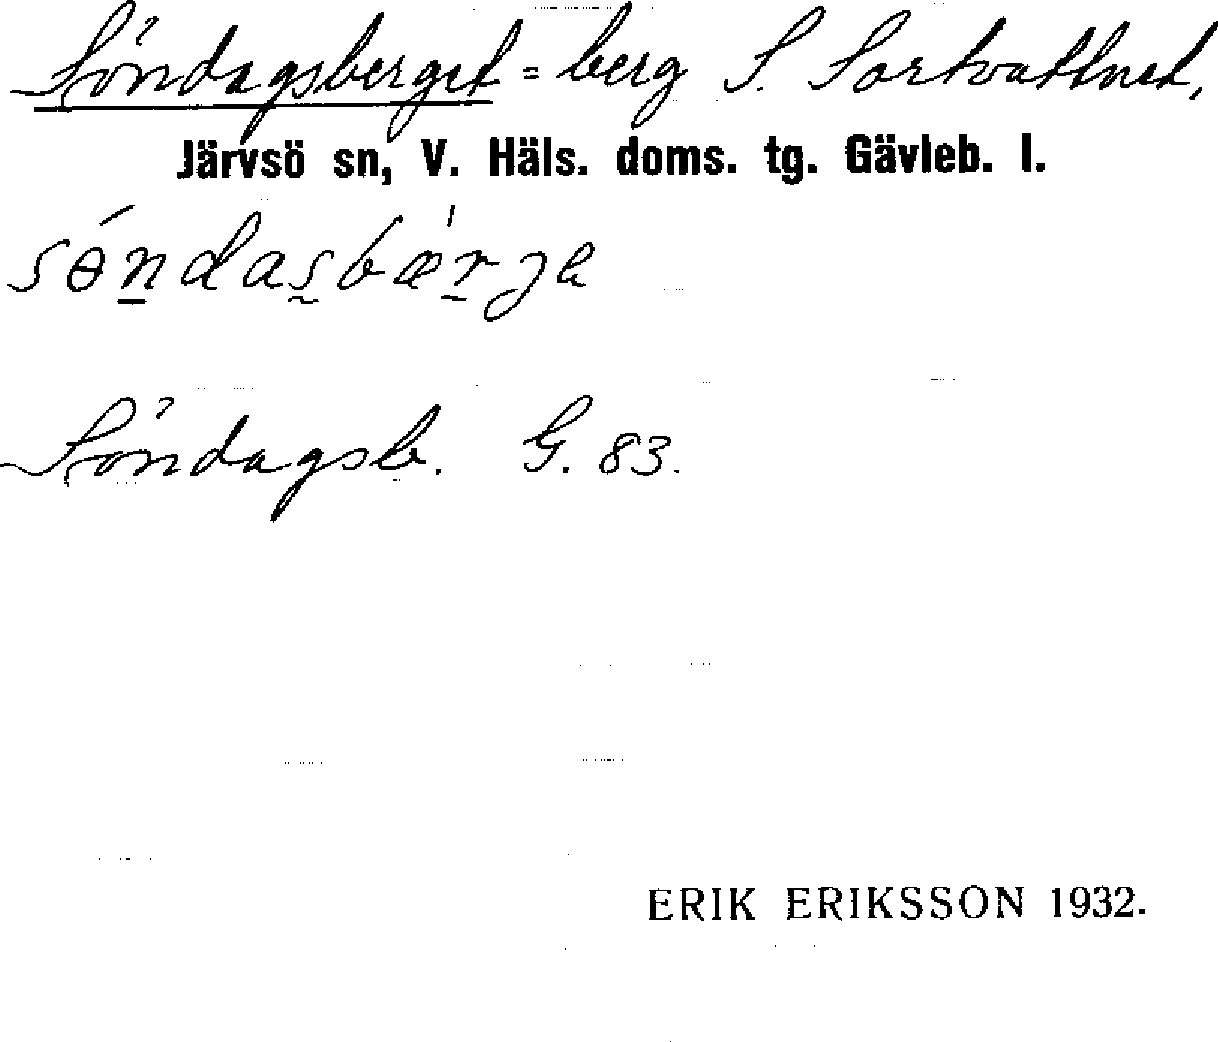 Söndagsberget = berg S. Sortvattnet,
Järvsö sn, V. Häls. doms. tg. Gävleb. l.
sǿndasbǽrje
Söndagsb. G. 83.
ERIK ERIKSSON 1932.